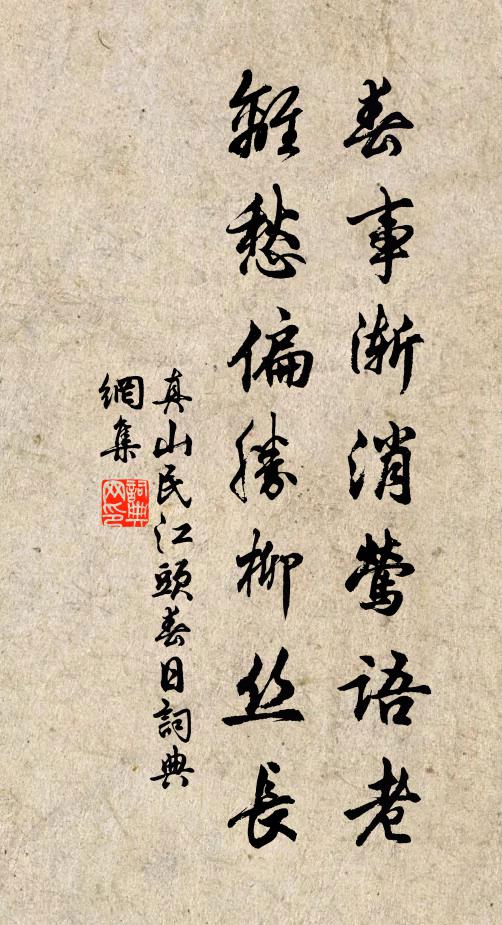 春事渐消莺语老
离愁偏胜柳丝长
真山民江头春日词典
网集
词典
网印